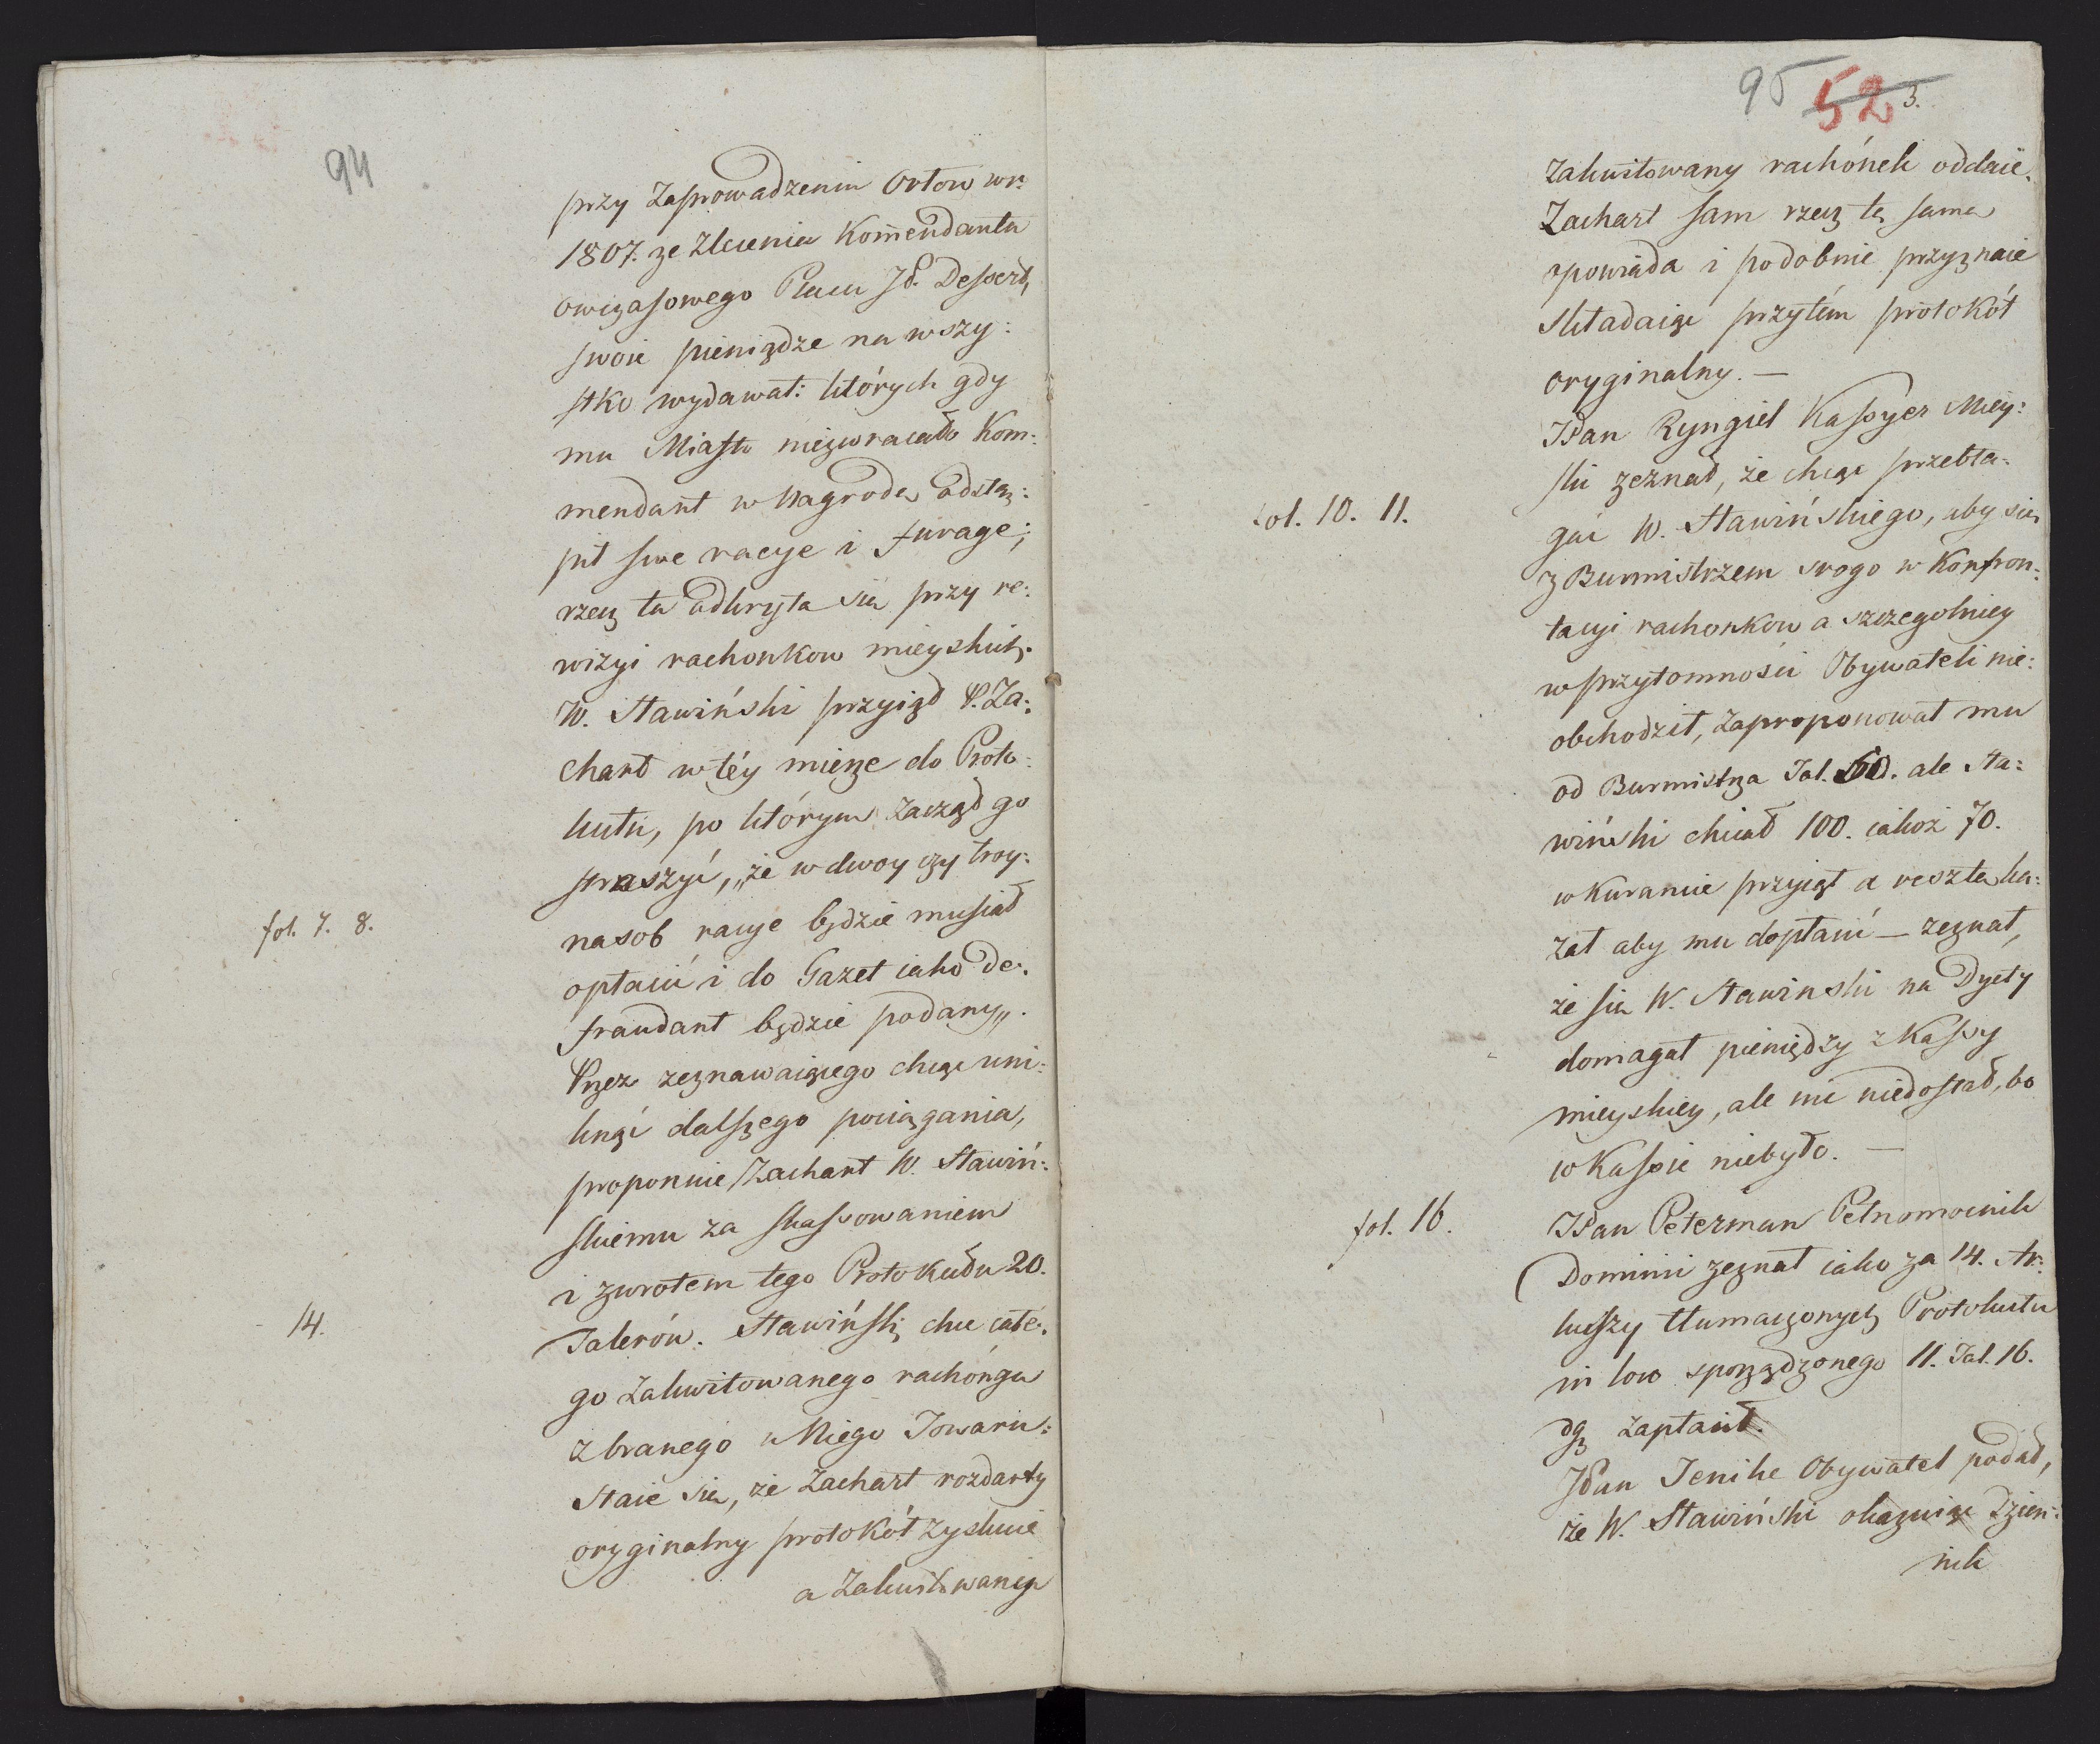 94
przy Zaprowadzeniu Orłow wr:
1807. ze Zlecenia Kommendanta
owczasowego Placu JP. Dessert,
swoie pieniądze na wszy:
stko wydawał: których gdy
mu Miasto niezwracało Kom:
mendant w Nagrodę odstą:
pił swe racye i furage;
rzecz ta odkryła się przy re:
wizyi rachonkow mieyskich.
W. Stawiński przyiął P. Za:
chart w téy mierze do Proto:
kułu, po którym zaczął go
straszyć, „że w dwoy czy troy:
fol. 7. 8.
nasob racye będzie musiał
opłacić i do Gazet iako De:
fraudant będzie podany„.
Przez zeznawaiącego chcąc uni:
knąć dalszego pociągania,
proponuie Zachart W. Stawiń:
skiemu za skassowaniem
i zwrotem tego Protokułu 20.
14.
Talerów. Stawiński chce całe:
go zakwitowanego rachónga
zbranego u Niego Towaru:
Staie się, że Zachart rozdarty
oryginalny protokół zyskuie
a Zakwitowaneg
95 52 3.
Zakwitowany rachónek oddaie.
Zachart sam rzecz tę samą
powiada i podobnie przyznaie
składaiąc przytém protokół
oryginalny. —
JPan Ryngiel Kassyer Miey:
ski zeznał, że chcąc przebła:
fol. 10. 11.
gać W. Stawińskiego, aby się
z Burmistrzem srogo w Konfron:
tacyi rachonkow a szczegolniey
w przytomności Obywateli nie:
obchodził, zaproponował mu
od Burmistrza Tal. 50. ale Sta:
wiński chciał 100. iakoż 70.
w kurancie przyiął a resztę ka:
zał aby mu dopłacić — zeznał,
że się W. Stawinski na Dyety
domagał pieniędzy z Kassy
mieyskiey, ale nic niedostał, bo
w Kassie niebyło. —
fol. 16.
JPan Peterman Pełnomocnik
Dominii zeznał iako za 14. Ar:
kuszy tłumaczonych Protokułu
in loco sporządzonego 11. Tal. 16.
dg zapłacił.
JPan Jenike Obywatel podał,
że W. Stawiński okazuiąc Dzien:
nik